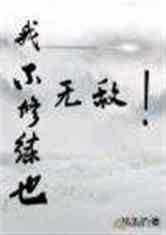 我不修练也
无敌！